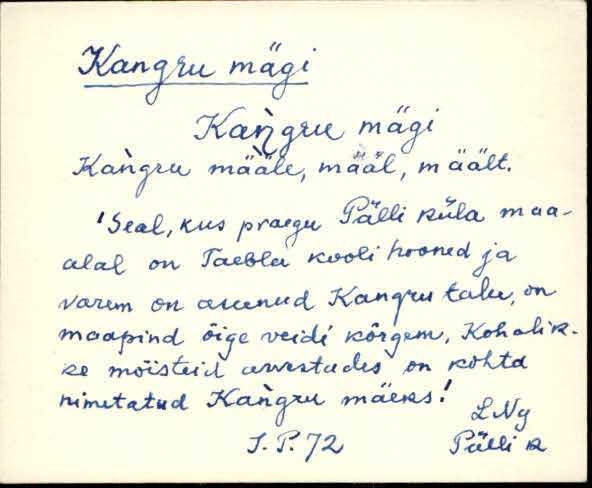 Kangru mägi
Kaǹgru mägi
Kaǹgru määle, määl, mäält.
'Seal, kus praegu Pälli küla maa-
alal on Taebla kooli hooned ja
varem on asunud Kangru talu, on
maapind õige veidi kõrgem, Kohalik-
ke mõisteid arvestades on kohta
nimetatud Kaǹgru mäeks!
LNg
J. P. 72
Pälli k